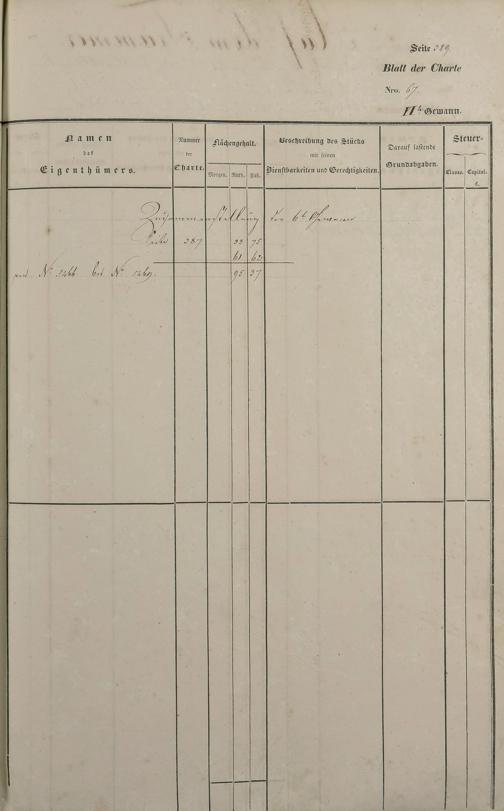 Seite 389
Blatt der Charte
Nro. 67.
Gewann.
Namen
des
Eigenthümers.
Nummer
der
Charte.
Flächengehalt.
Morgen. Ruth. Fuß.
Beschreibung des Stücks
mit seinen
Dienstbarkeiten und Gerechtigkeiten.
Darauf lastende
Grundabgaben.
Steuer-
Classe. Capital.
Zusammenstellung der 6t Gewann
Seite 387 33 75
61 62
95 37